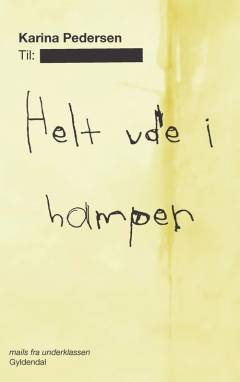 Karina Pedersen
Til:
Helt ude i
hampen
mails fra underklassen
Gyldendal